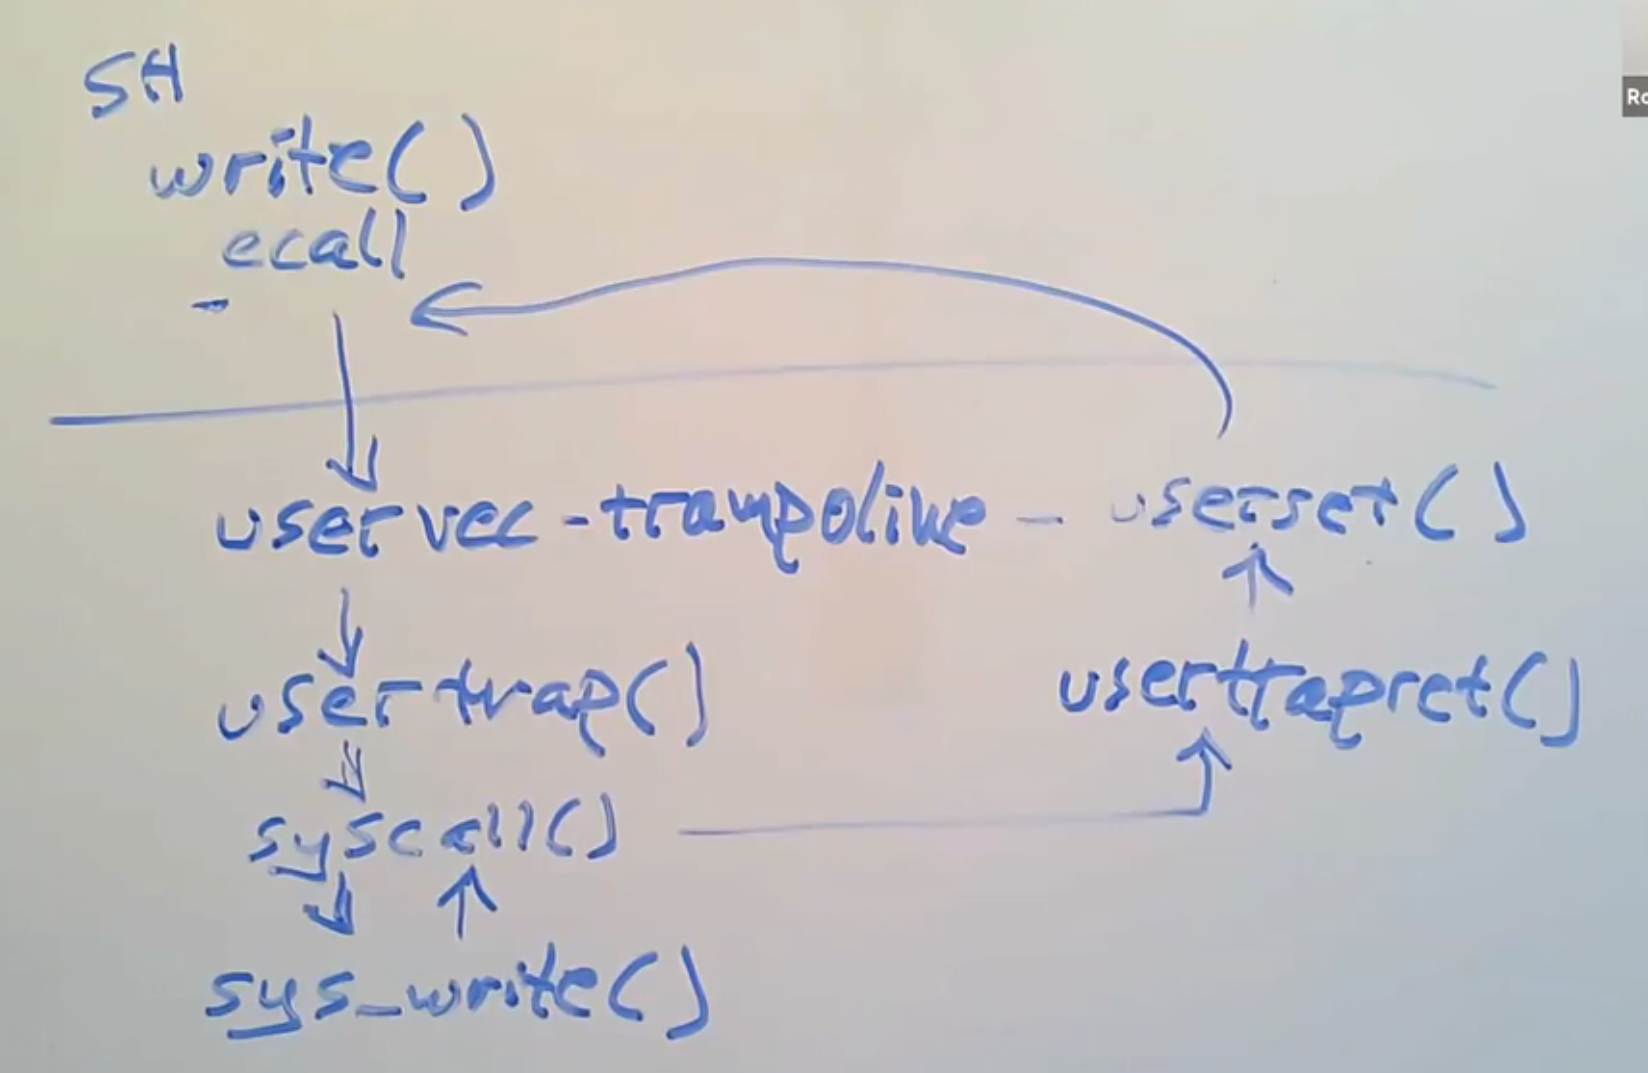 SH
write()
ecall
uservec - trampoline - userret()
usertrap()
usertrapret()
syscall()
sys_write()
Ro